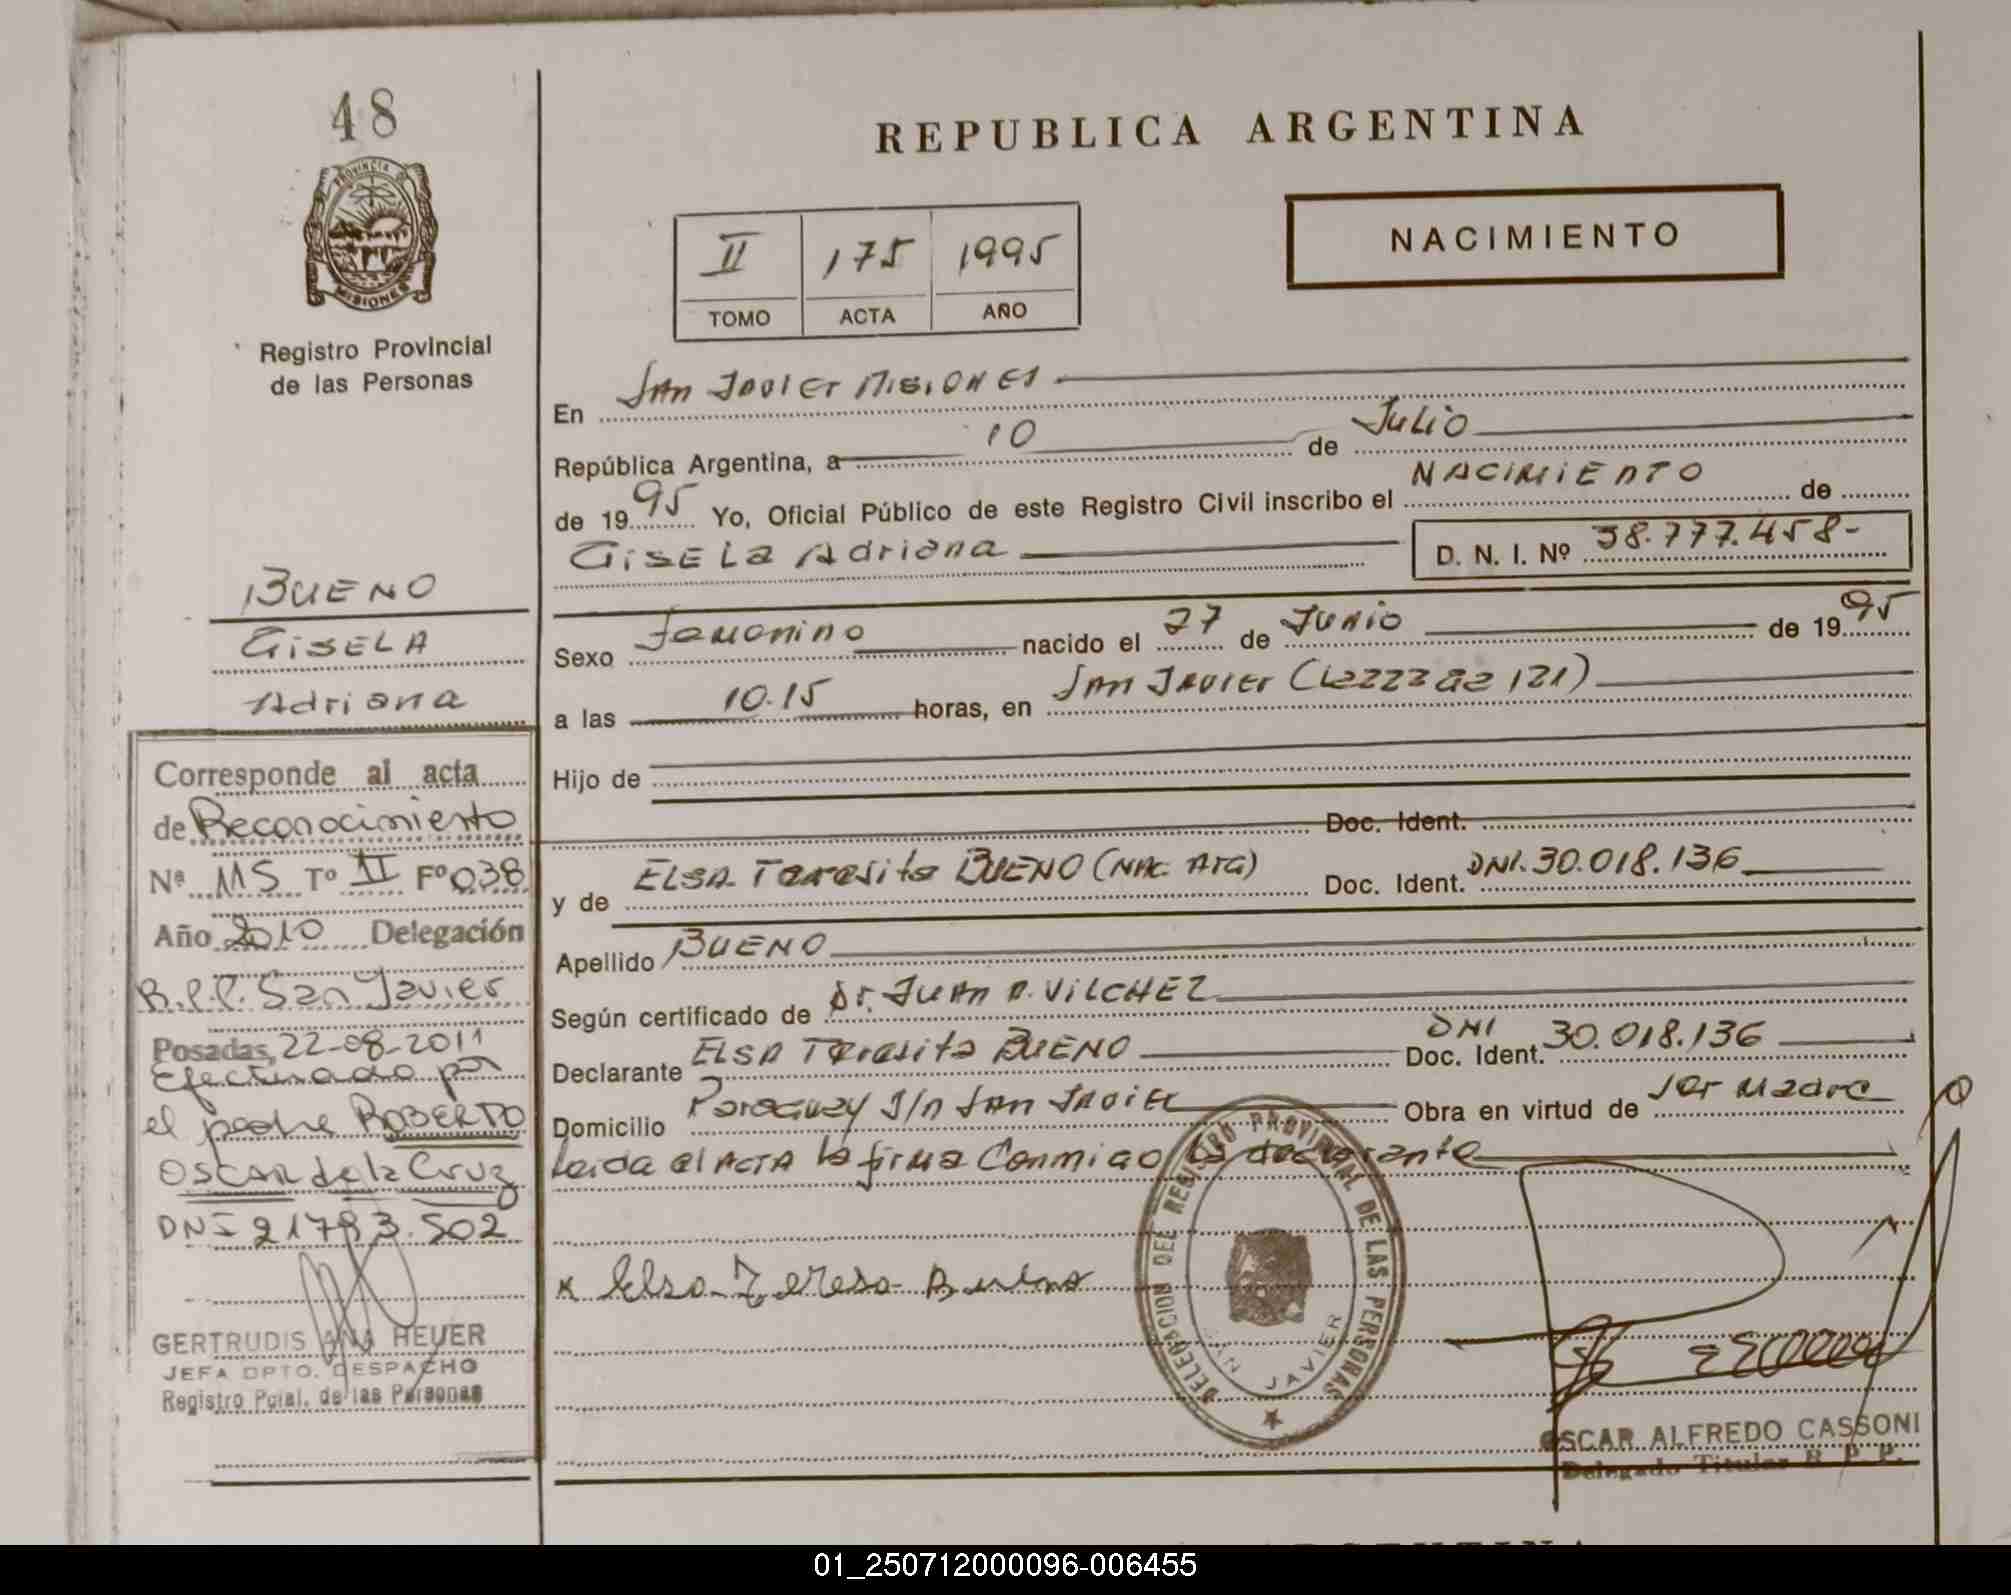 48
PROVINCIA DE
MISIONES
Registro Provincial
de las Personas
BUENO
GISELA
Adriana
Corresponde al acta
de Reconocimiento
Nº MS Tº II Fº 038
Año 2010 Delegación
R.P.P. San Javier
Posadas, 22-08-2011
Efectuado por
el padre ROBERTO
OSCAR de la Cruz
DNI 21783.502
GERTRUDIS ANA HEUER
JEFA DPTO. DESPACHO
Registro Pcial. de las Personas
REPUBLICA ARGENTINA
NACIMIENTO
II 175 1995
TOMO ACTA AÑO
En San Javier Misiones
República Argentina, a 10 de Julio
de 1995 Yo, Oficial Público de este Registro Civil inscribo el NACIMIENTO de
GISELA Adriana D. N. I. Nº 38.777.458-
Sexo Femenino nacido el 27 de Junio de 1995
a las 10.15 horas, en San Javier (Lezzzae 121)
Hijo de
Doc. Ident.
y de ELSA Teresita BUENO (NAC. ArG) Doc. Ident. DNI. 30.018.136
Apellido BUENO
Según certificado de Dr. JUAN A. VILCHEZ
Declarante ELSA Teresita BUENO Doc. Ident. DNI 30.018.136
Domicilio Paraguay S/n San Javier Obra en virtud de Ser Madre
Leida el ACTA la firma Conmigo la declarante
x Elsa Teresa Bueno
DELEGACION DEL REGISTRO PROVINCIAL DE LAS PERSONAS
SAN JAVIER
OSCAR ALFREDO CASSONI
Delegado Titular R. P. P.
01_250712000096-006455